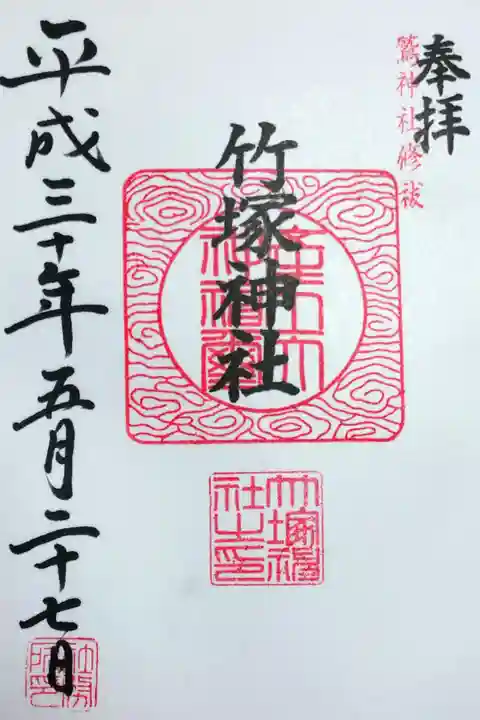 奉拝
鷲神社修祓
竹塚神社
竹塚神社之印
平成三十年五月二十七日
社務所印